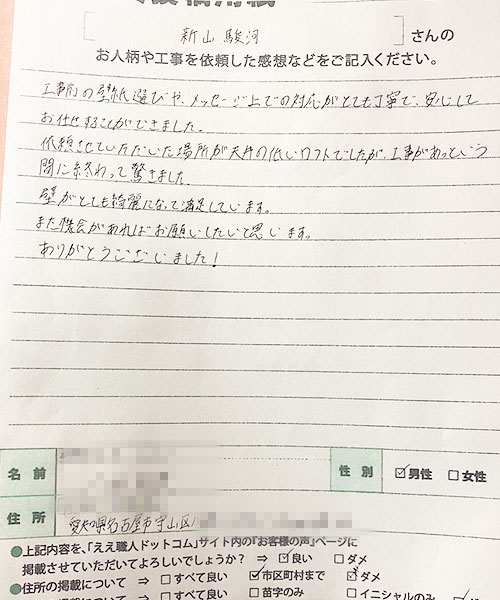 新山 駿河 さんの
お人柄や工事を依頼した感想などをご記入ください。
工事前の壁紙選びや、メッセージ上での対応がとても丁寧で、安心して
お任せすることができました。
依頼させていただいた場所が天井の低いロフトでしたが、工事があっという
間に終わって驚きました。
壁がとても綺麗になって満足しています。
また機会があればお願いしたいと思います。
ありがとうございました!
名前
性別 ☑男性 □女性
住所
愛知県名古屋市守山区
●上記内容を、「ええ職人ドットコム」サイト内の「お客様の声」ページに
掲載させていただいてよろしいでしょうか? ⇒ ☑良い □ダメ
●住所の掲載について ⇒ □すべて良い ☑市区町村まで ☑ダメ
⇒ □すべて良い □苗字のみ □イニシャルのみ